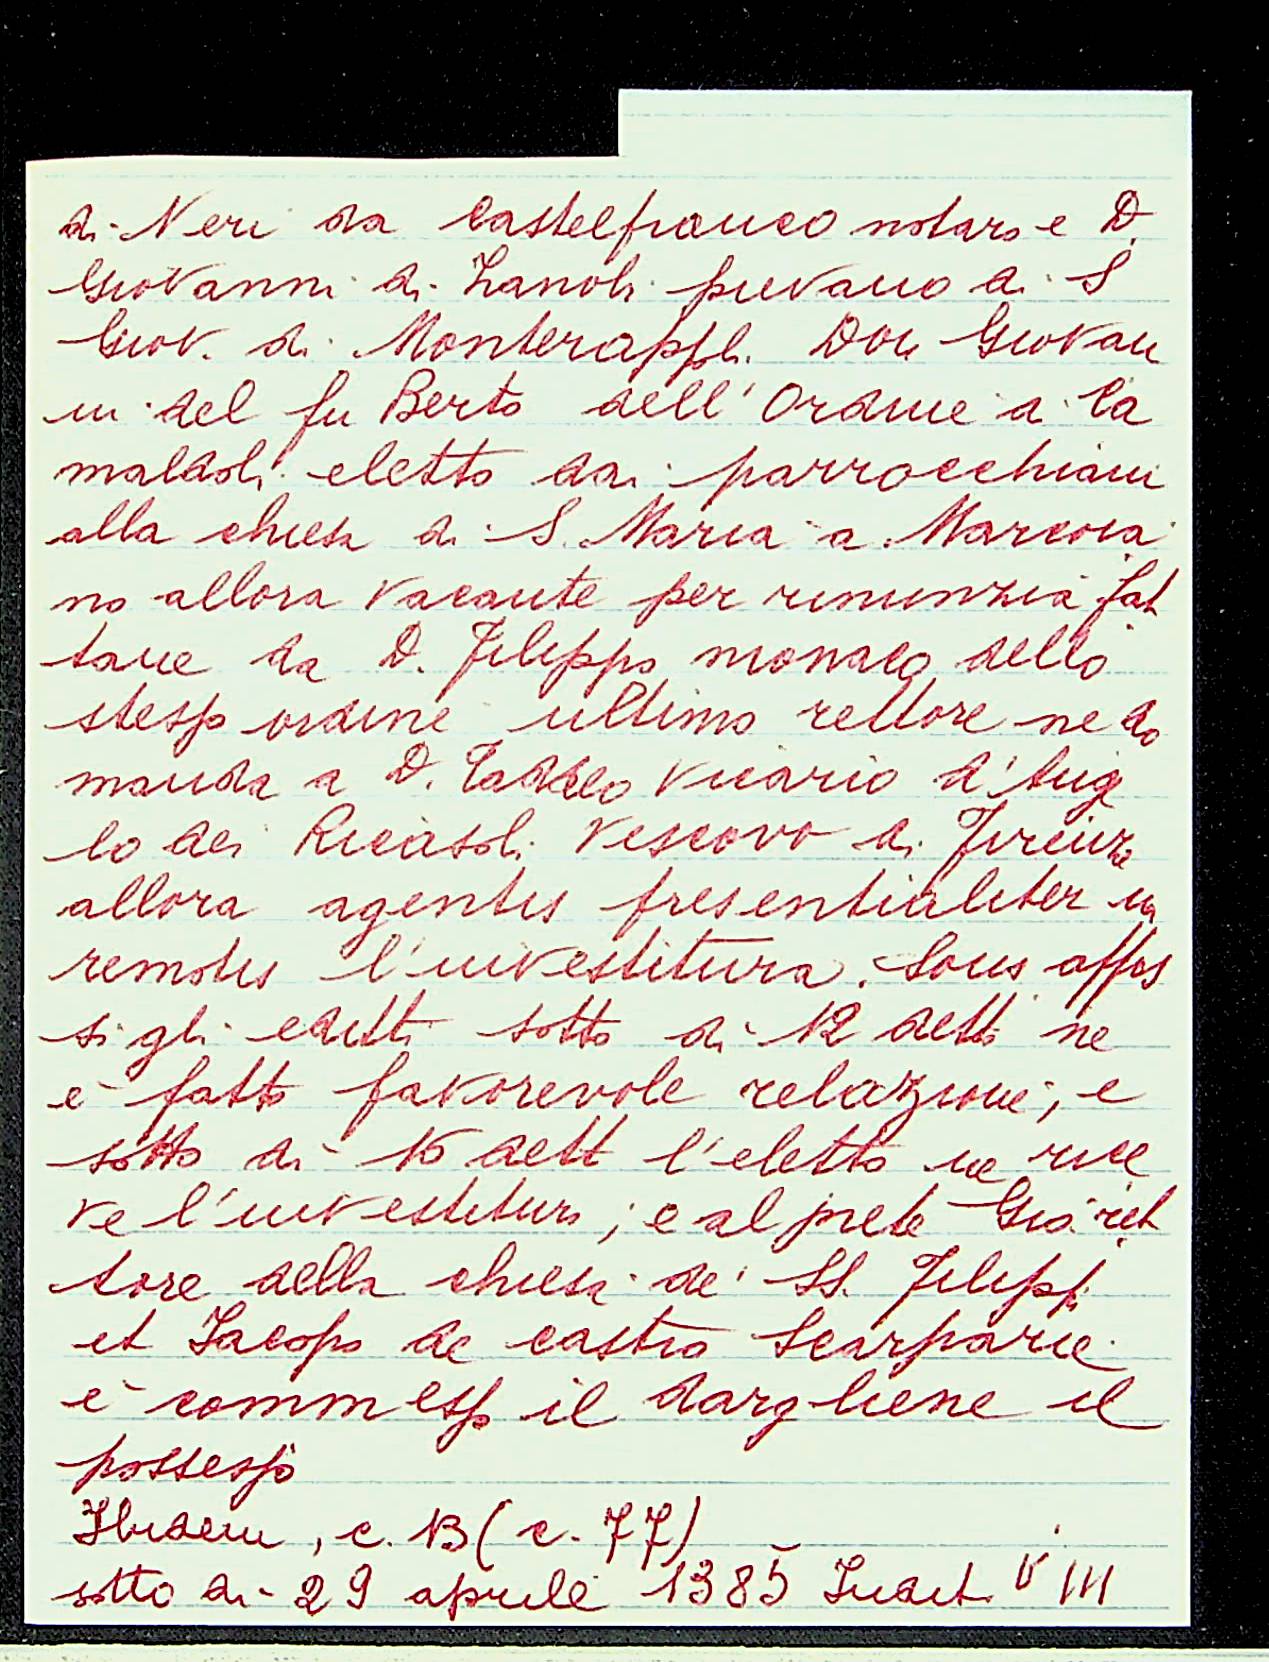 di Neri da Castelfranco notaro e D.
Giovanni di Zanoli pievano di S
Giov. di Monterappoli. Don Giovan
ni del fu Berto dell'Ordine di Ca
maldoli eletto dai parrocchiani
alla chiesa di S. Maria a Marcoia
no allora vacante per rinunzia fat
tane da D. Filippo monaco dello
stesso ordine ultimo rettore ne do
manda a D. Taddeo Vicario d'Ang
lo dei Ricasoli Vescovo di Firenze
allora agentis presentialiter in
remotis l'investitura. Sono affis
si gli editti sotto dì 12 detto ne
è fatto favorevole relazione, e
sotto dì 16 dett l'eletto ne rice
ve l'investitura; e al prete Gio. ret
tore della chiesa de' SS. Filippi
et Jacopo de castro Scarparie
è commesso il dargliene il
possesso
Ibidem, c. 13 (c. 77)
sotto dì 29 aprile 1385 Indict. VIII